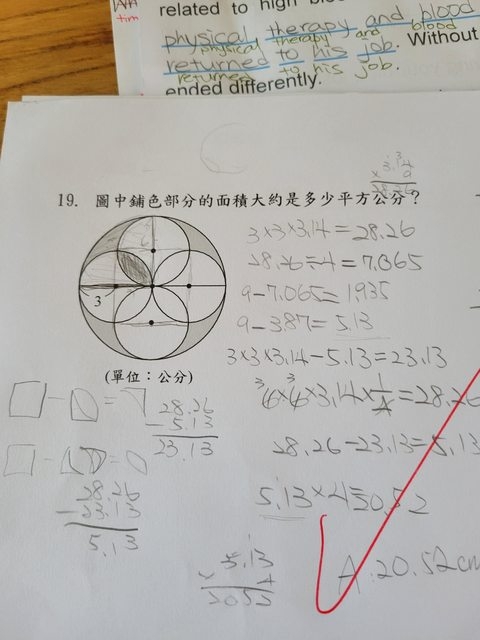 tim
related to high
physical therapy and blood
physical therapy and blood
returned to his job. Without
returned to his job.
ended differently.
3.14
× 9
28.26
19. 圖中鋪色部分的面積大約是多少平方公分？
3
(單位：公分)
3×3×3.14=28.26
28.26÷4=7.065
9-7.065=1.935
9-3.87=5.13
3×3×3.14-5.13=23.13
28.26-23.13=5.13
5.13×4=20.52
A.20.52cm
28.26
-5.13
23.13
28.26
-23.13
5.13
5.13
× 4
2052